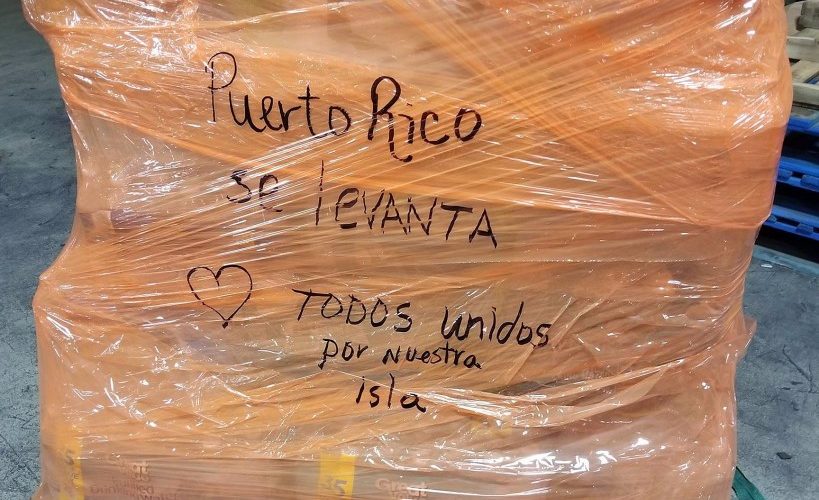 Puerto Rico
se levANTA
TODOS unidos
por nuestra
isla
35
Great